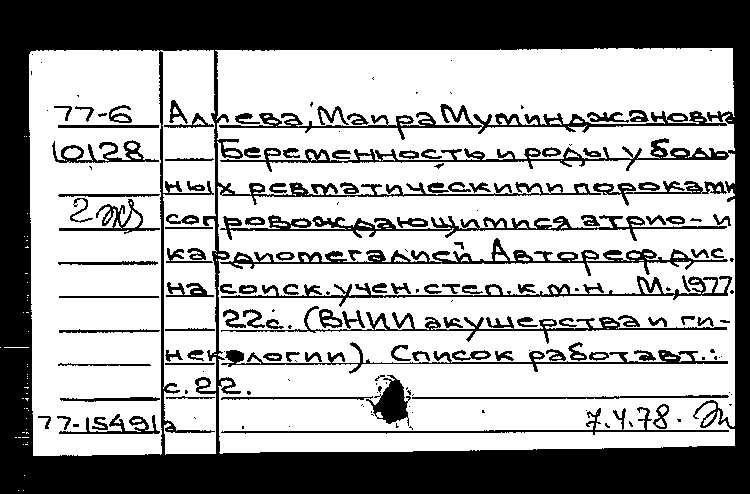 77-6 Алиева, Маира Муминджановна
10128 Беременность и роды у боль-
ных ревматическими пороками
2 экз сопровождающимися атрио- и
кардиомегалией. Автореф. дис.
на соиск. учен. степ. к.м.н. М., 1977.
22с. (ВНИИ акушерства и ги-
некологии). Список работ авт.:
с. 22.
77-15491а 7.4.78.